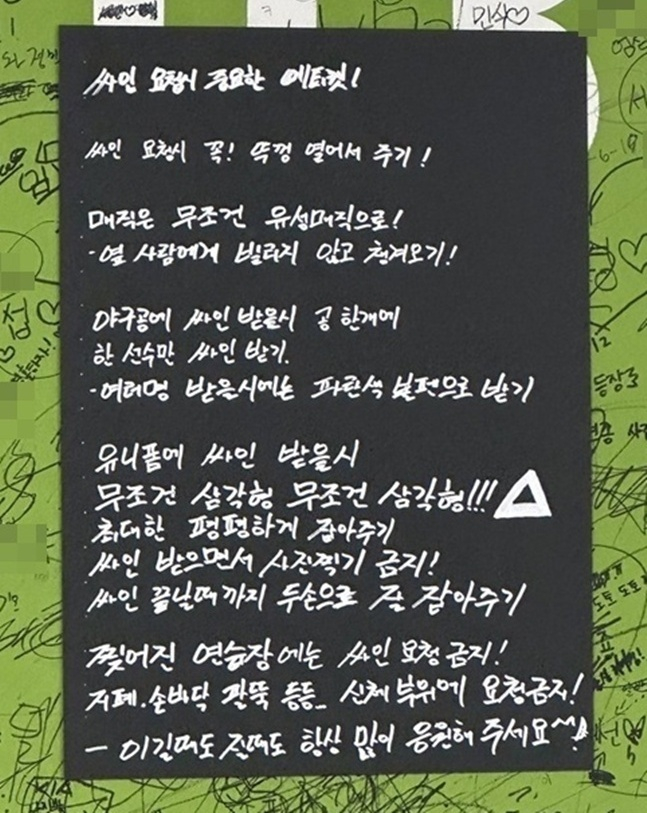 민식♡
싸인 요청시 중요한 에티켓!
싸인 요청시 꼭! 뚜껑 열어서 주기!
매직은 무조건 유성매직으로!
·옆 사람에게 빌리지 않고 챙겨오기!
야구공에 싸인 받을시 공 한개에
한 선수만 싸인 받기.
·여러명 받을시에는 파란색 볼펜으로 받기
유니폼에 싸인 받을시
무조건 삼각형 무조건 삼각형!!! △
최대한 평평하게 잡아주기
싸인 받으면서 사진찍기 금지!
싸인 끝날때까지 두손으로 잘 잡아주기
찢어진 연습장에는 싸인 요청금지!
지폐.손바닥 팔뚝 등등_ 신체부위에 요청금지!
— 이길때도 질때도 항상 많이 응원해 주세요^^!
KIA